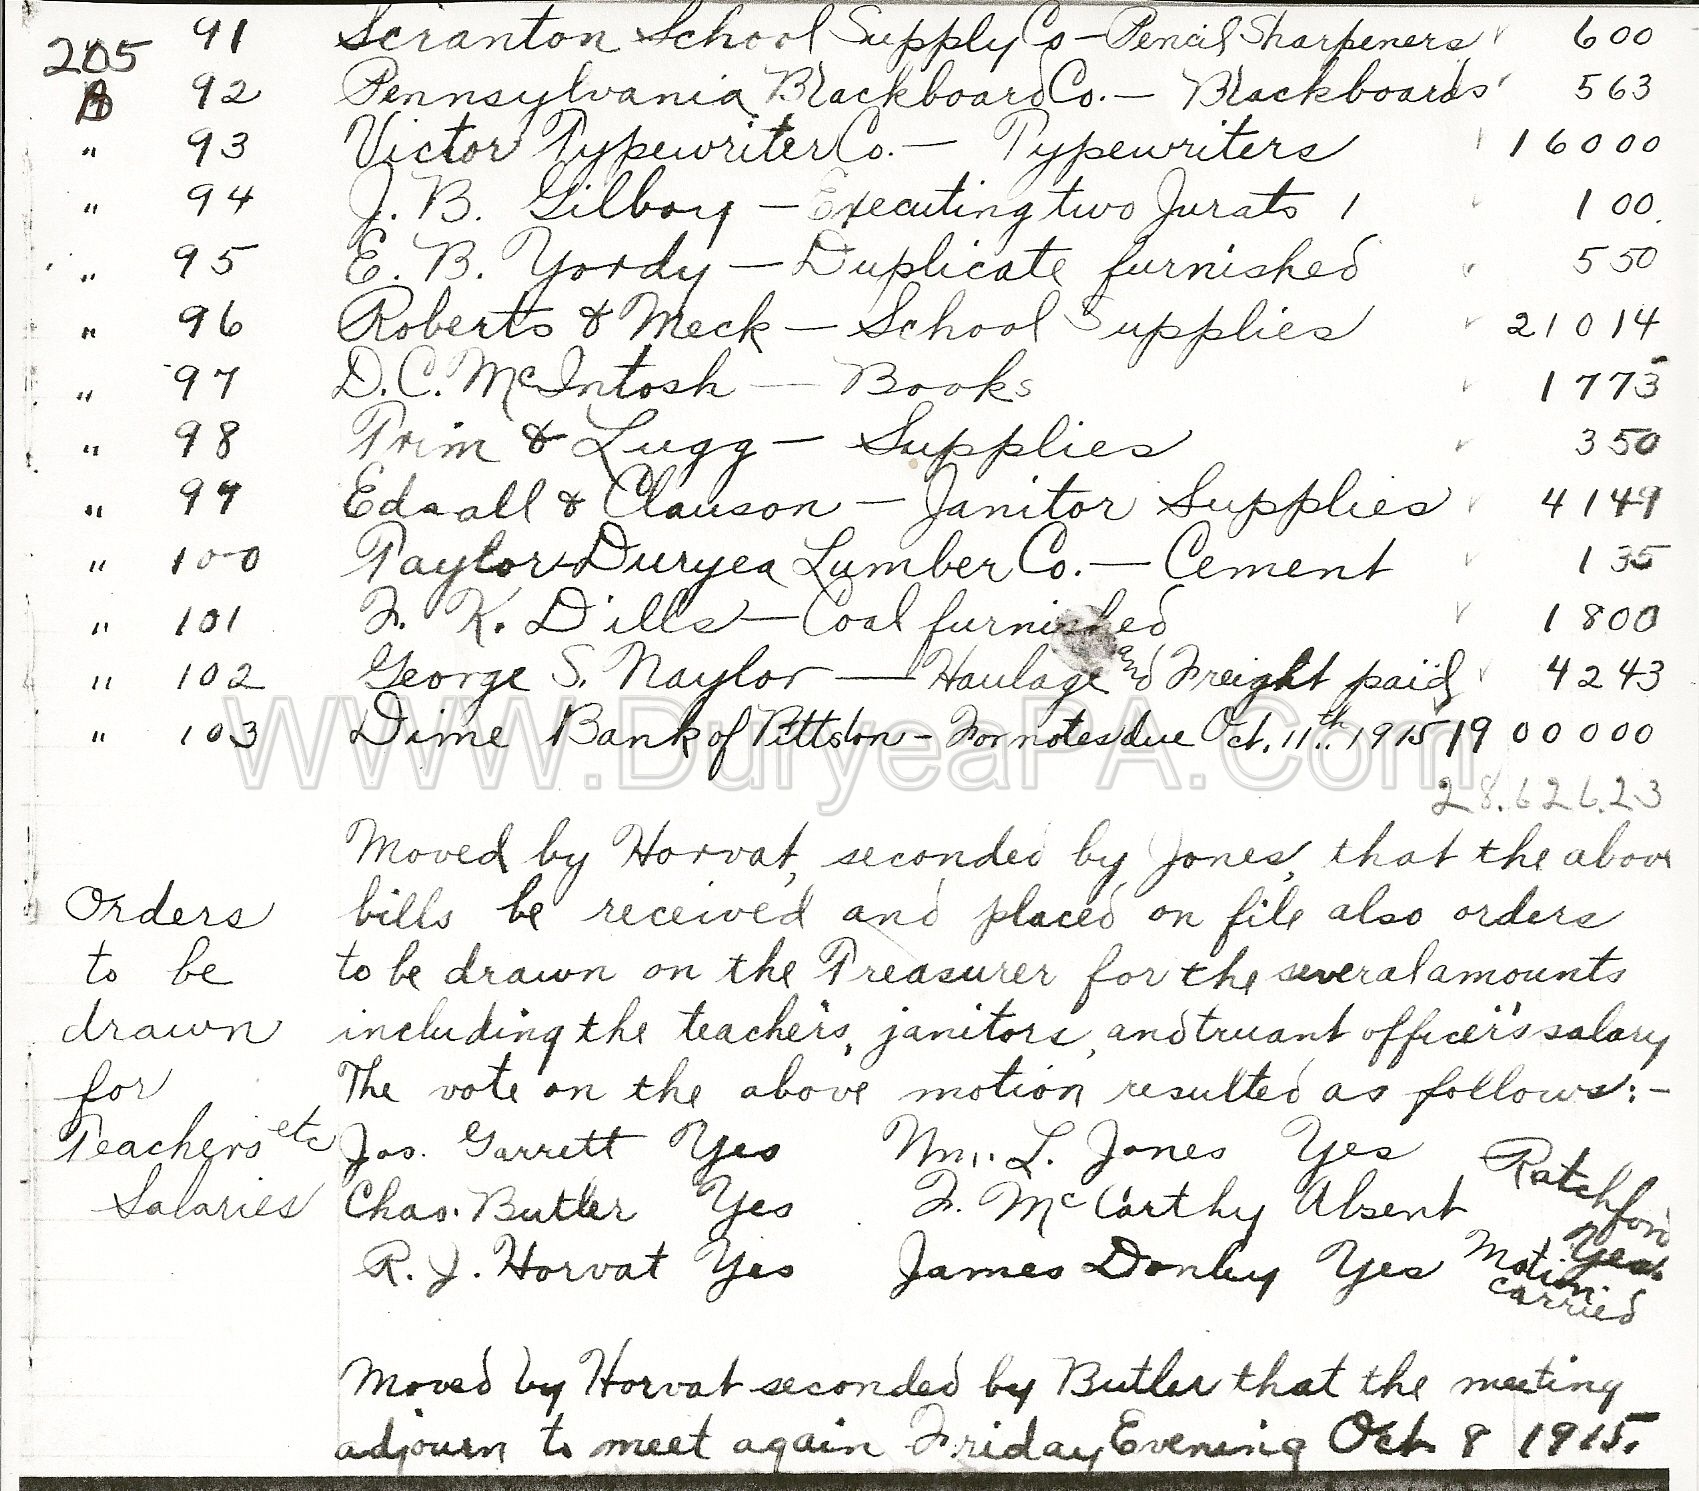 205 91 Scranton School Supply Co - Pencil Sharpeners 6 00
A 92 Pennsylvania Blackboard Co. - Blackboards 5 63
" 93 Victor Typewriter Co. - Typewriters 160 00
" 94 J. B. Gilboy - Executing two Jurats 1 1 00
" 95 E. B. Yordy - Duplicate furnished 5 50
" 96 Roberts & Meck - School Supplies 210 14
" 97 D. C. McIntosh - Books 17 73
" 98 Prim & Lugg - Supplies 3 50
" 99 Edsall & Clauson - Janitor Supplies 41 49
" 100 Taylor-Duryea Lumber Co. - Cement 1 35
" 101 F. K. Dills - Coal furnished 18 00
" 102 George S. Naylor - Haulage and Freight paid 42 43
" 103 Dime Bank of Pittston - For notes due Oct. 11th. 1915 19 000 00
WWW.DuryeaPA.Com
28.626.23
Moved by Horvat, seconded by Jones, that the above
Orders bills be received and placed on file also orders
to be to be drawn on the Treasurer for the several amounts
drawn including the teacher's, janitors, and truant officer's salary
for The vote on the above motion resulted as follows:-
Teachers etc Jos. Garrett Yes Wm. L. Jones Yes Ratchford
Salaries Chas. Butler Yes F. McCarthy Absent Yes.
R. J. Horvat Yes James Donley Yes Motion carried
Moved by Horvat seconded by Butler that the meeting
adjourn to meet again Friday Evening Oct. 8 1915.